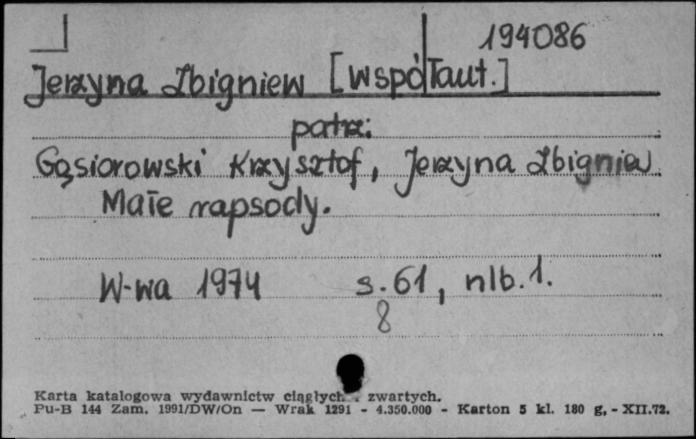 194086
Jerzyna Zbigniew [współaut.]
patrz:
Gąsiorowski Krzysztof, Jerzyna Zbigniew
Małe rapsody.
W-wa 1974 s. 61, nlb. 1.
8
Karta katalogowa wydawnictw ciągłych i zwartych.
Pu-B 144 Zam. 1991/DW/On — Wrak 1291 - 4.350.000 - Karton 5 kl. 180 g. - XII.72.